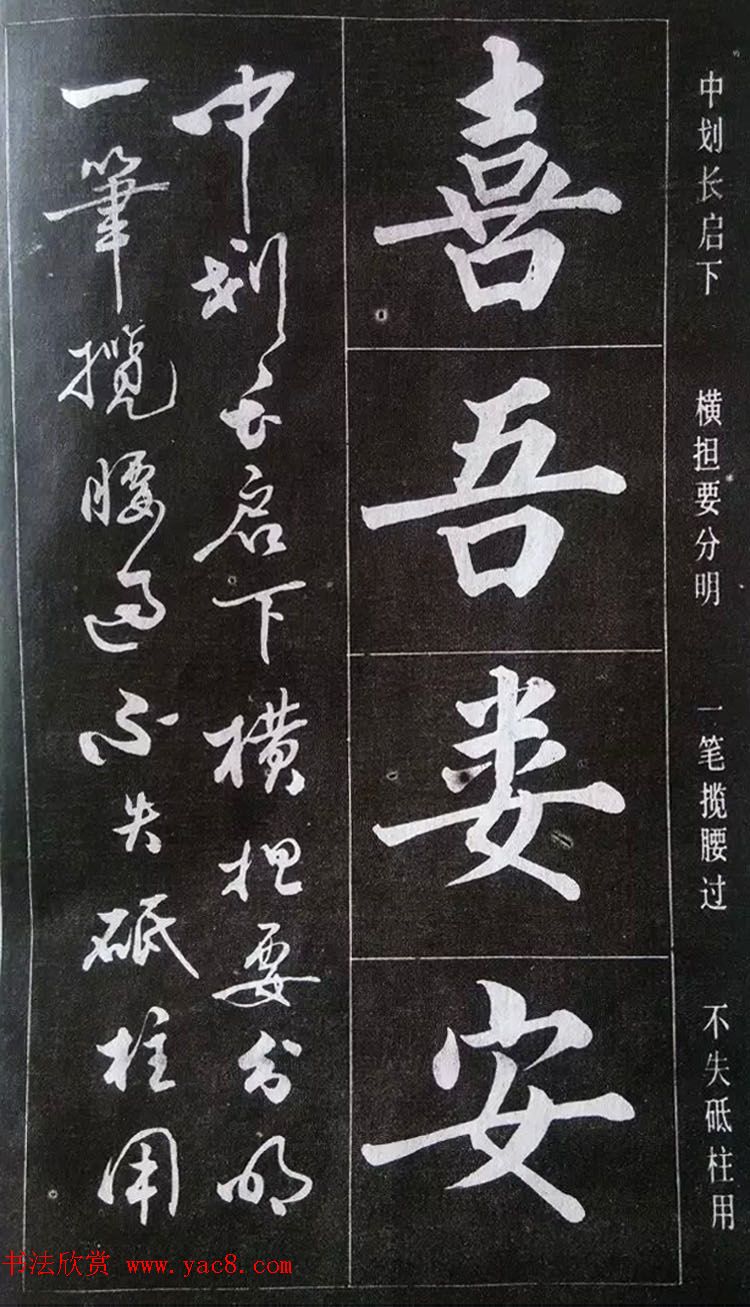 中划长启下 横担要分明 一笔揽腰过 不失砥柱用
喜
吾
娄
安
中划长启下横担要分明
一筆揽腰過不失砥柱用
书法欣赏 www.yac8.com